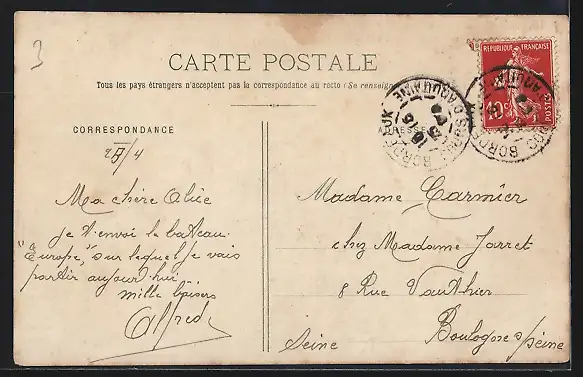 3
CARTE POSTALE
Tous les pays étrangers n'acceptent pas la correspondance au recto (Se renseign
CORRESPONDANCE
ADRESSE
RÉPUBLIQUE FRANÇAISE
10c
POSTES
BORDEAUX
Ma chère Alice
je t'envoi le bateau
"Europe", sur lequel je vais
partir aujourd'hui
mille baisers
Alfred
Madame Carmier
chez Madame Jarret
8 Rue Vauthier
Boulogne s/Seine
Seine